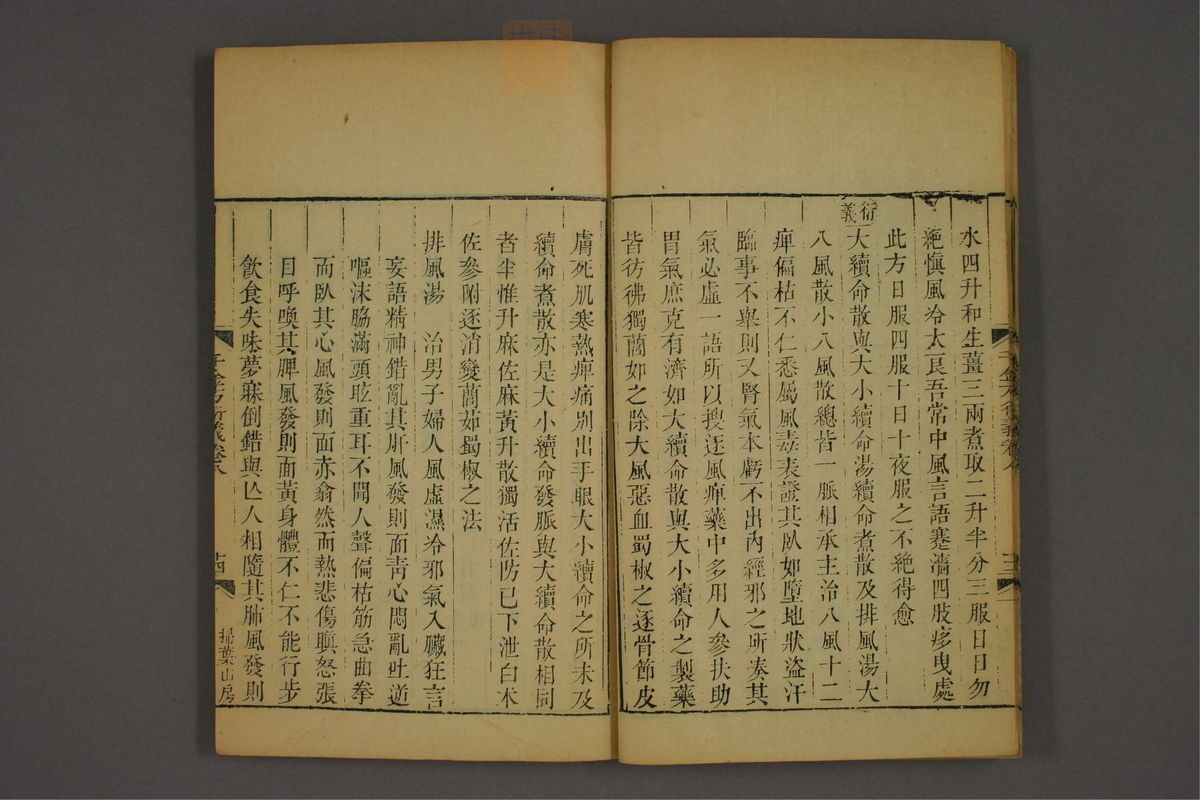 水四升和生薑三兩煮取二升半分三服日日勿
絕慎風冷大良吾常中風言語蹇澀四肢痑曳處
此方日服四服十日十夜服之不絕得愈
衍義
大續命散與大小續命湯續命煮散及排風湯大
八風散小八風散總皆一脈相承主治八風十二
痺偏枯不仁悉屬風毒表證其臥如墮地狀盜汗
臨事不舉則又腎氣本虧不出內經邪之所湊其
氣必虛一語所以搜逐風痺藥中多用人參扶助
胃氣庶克有濟如大續命散與大小續命之製藥
皆彷彿獨藺茹之除大風惡血蜀椒之逐骨節皮
千金方衍義卷八
膚死肌寒熱痺痛別出手眼大小續命之所未及
續命煮散亦是大小續命發脈與大續命散相同
者半惟升麻佐麻黃升散獨活佐防已下泄白朮
佐參附逐消變藺茹蜀椒之法
排風湯 治男子婦人風虛濕冷邪氣入臟狂言
妄語精神錯亂其肝風發則面青心悶亂吐逆
嘔沫脇滿頭眩重耳不聞人聲偏枯筋急曲拳
而臥其心風發則面赤翕然而熱悲傷嗔怒張
目呼喚其脾風發則面黃身體不仁不能行步
飲食失味夢寐倒錯與亾人相隨其肺風發則
千金方衍義卷八
十四
掃葉山房